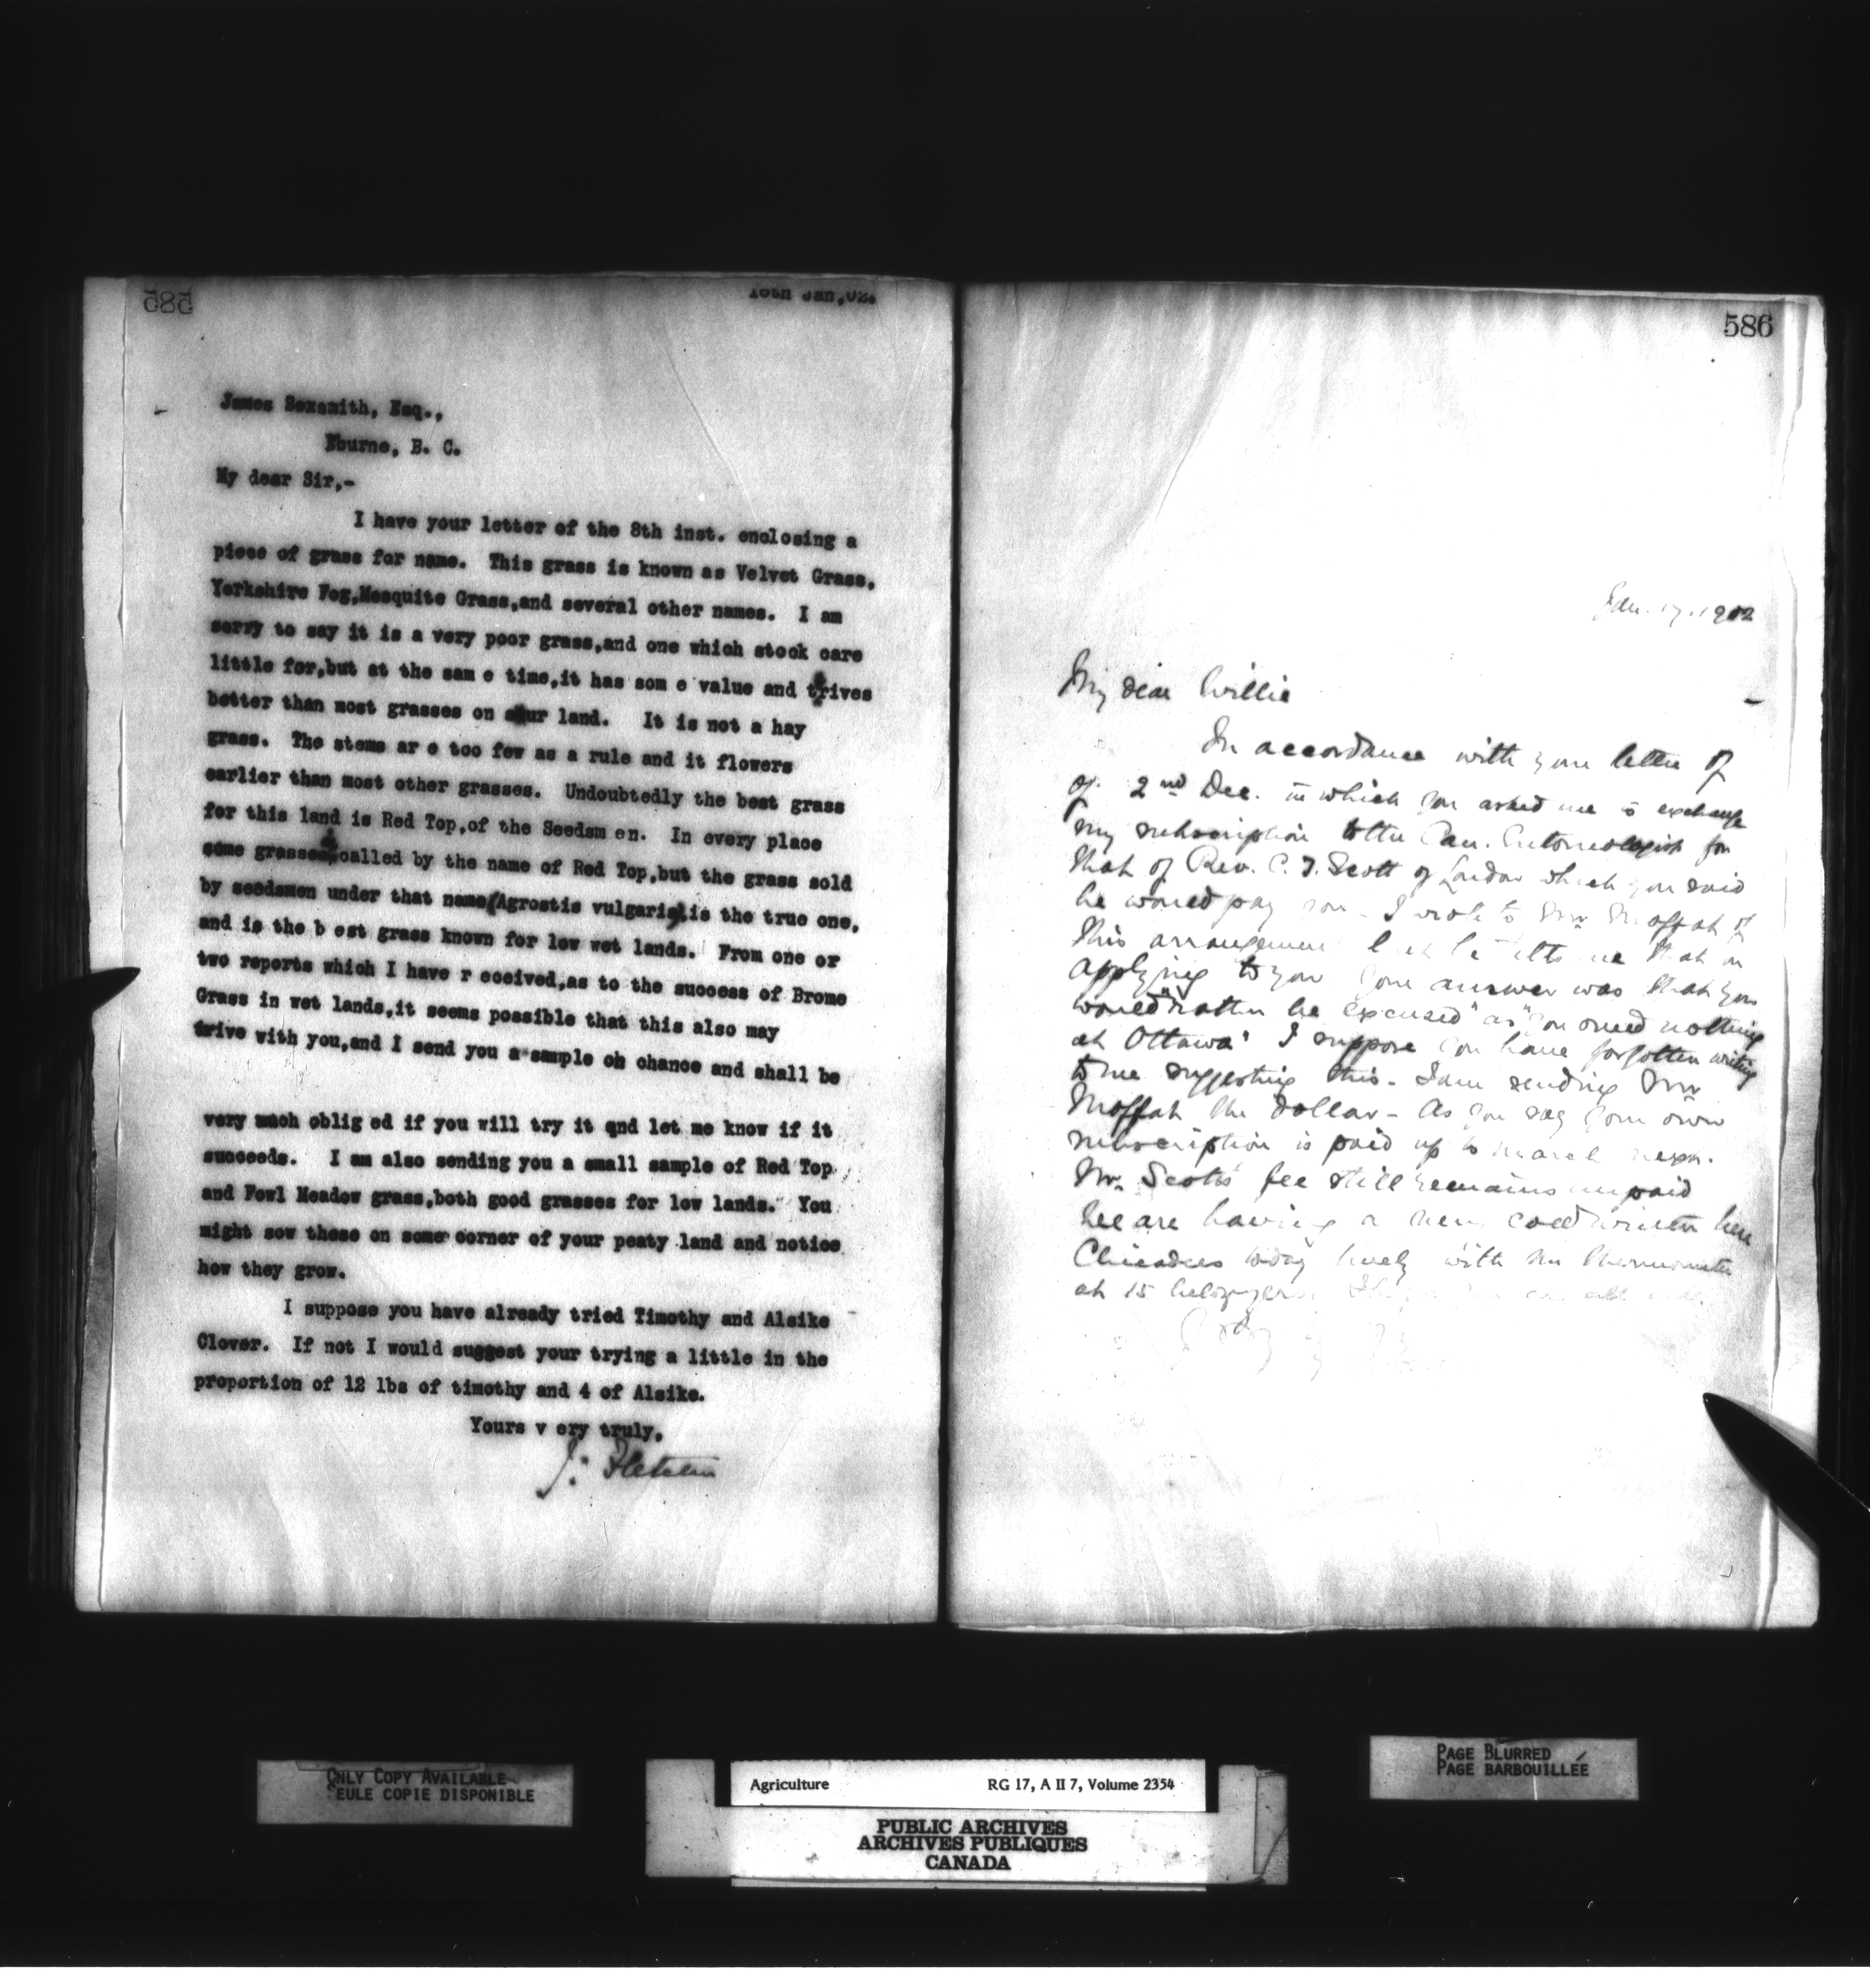 585
Jan, 02.
James Sexsmith, Esq.,
Eburne, B. C.
My dear Sir,-
I have your letter of the 8th inst. enclosing a
piece of grass for name. This grass is known as Velvet Grass,
Yorkshire Fog,Mesquite Grass,and several other names. I am
sorry to say it is a very poor grass,and one which stock care
little for,but at the sam e time,it has som e value and thrives
better than most grasses on sour land. It is not a hay
grass. The stems ar e too few as a rule and it flowers
earlier than most other grasses. Undoubtedly the best grass
for this land is Red Top,of the Seedsm en. In every place
some grasses called by the name of Red Top,but the grass sold
by seedsmen under that name(Agrostis vulgaris),is the true one,
and is the b est grass known for low wet lands. From one or
two reports which I have r eceived,as to the success of Brome
Grass in wet lands,it seems possible that this also may
trive with you,and I send you a sample on chance and shall be
very much oblig ed if you will try it and let me know if it
succeeds. I am also sending you a small sample of Red Top
and Fowl Meadow grass,both good grasses for low lands. You
might sow these on some corner of your peaty land and notice
how they grow.
I suppose you have already tried Timothy and Alsike
Clover. If not I would suggest your trying a little in the
proportion of 12 lbs of timothy and 4 of Alsike.
Yours v ery truly,
J. Fletcher
586
Jan. 17. 1902
My dear Willie
In accordance with your letter of
of 2nd Dec. in which you asked me to exchange
my subscription to the Can. Entomologist for
that of Rev. C. J. Scott of London which you said
he would pay you - I wrote to Mr Moffat of
this arrangement but he tells me that on
applying to you your answer was that you
would "rather be excused" as "you owed nothing
at Ottawa" I suppose you have forgotten writing
to me suggesting this - I am sending Mr
Moffat the dollar - As you say your own
subscription is paid up to March next.
Mr. Scott's fee still remains unpaid
We are having a very cold winter here
Chicadees today lively with the thermometer
at 15 below zero.
ONLY COPY AVAILABLE
SEULE COPIE DISPONIBLE
Agriculture RG 17, A II 7, Volume 2354
PUBLIC ARCHIVES
ARCHIVES PUBLIQUES
CANADA
PAGE BLURRED
PAGE BARBOUILLÉE